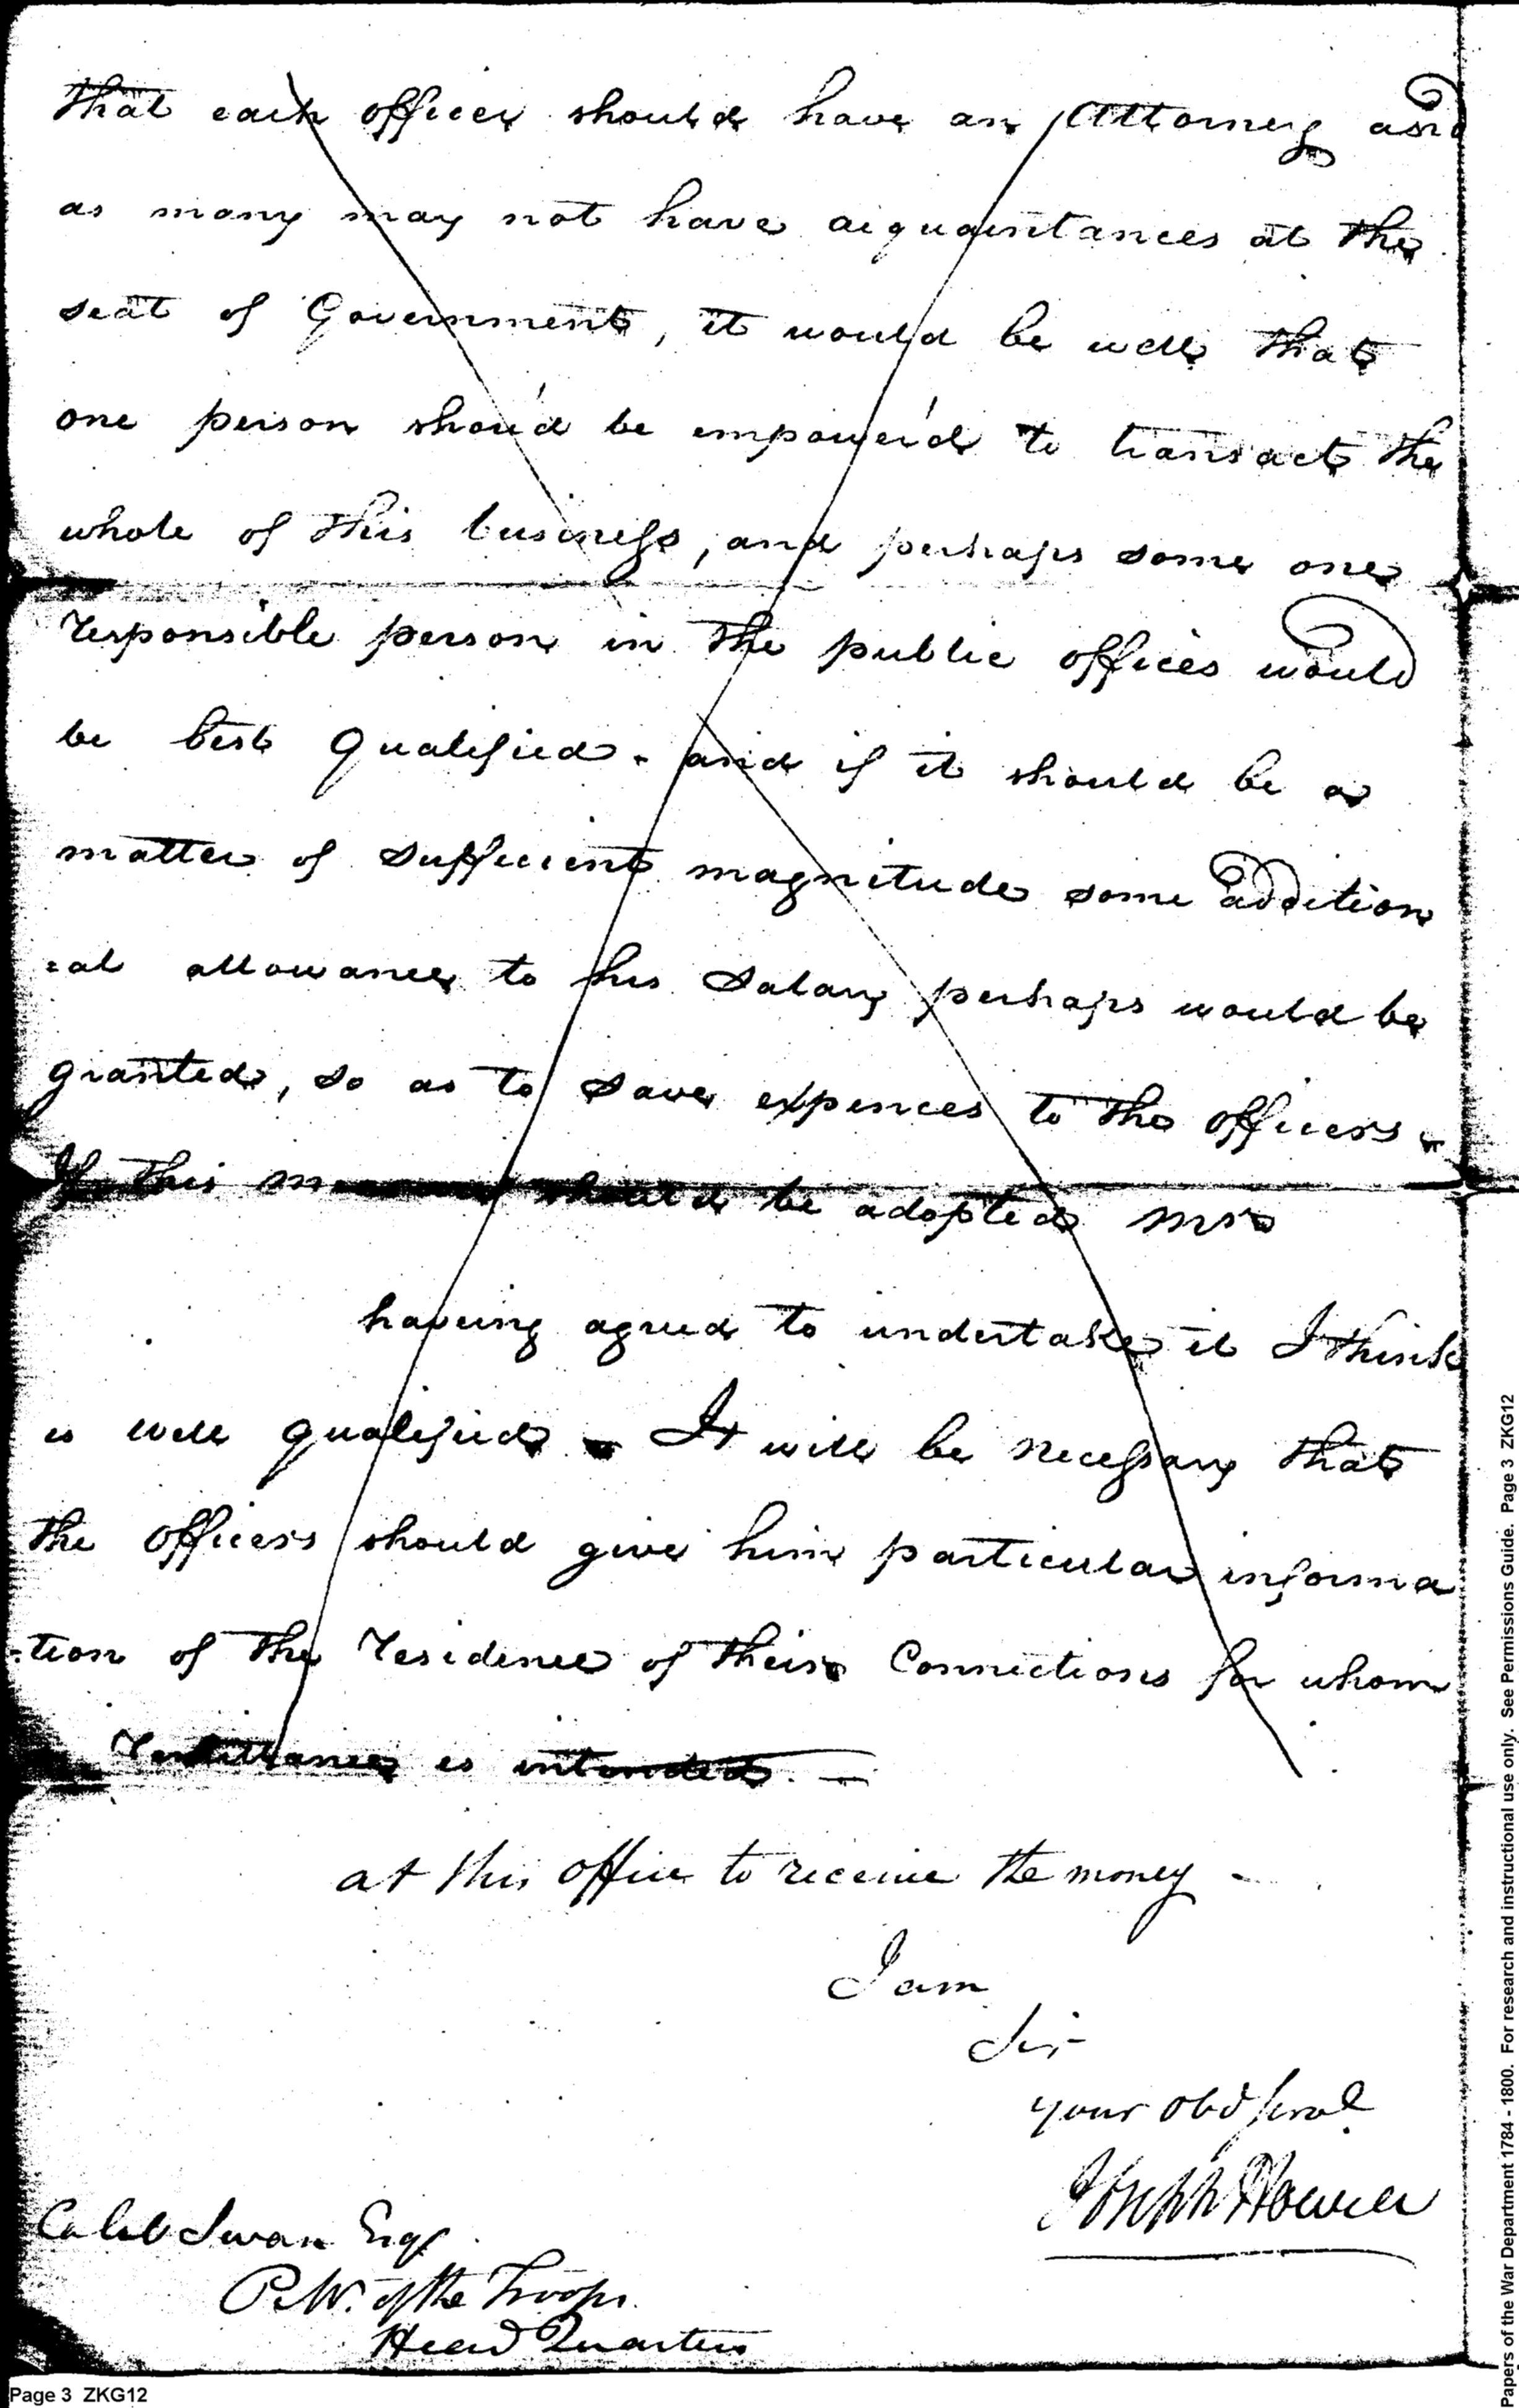 that each officer should have an Attorney and
as many may not have aiquaintances at the
seat of Government, it would be well that
one person shou'd be empower'd to transact the
whole of this business, and perhaps some one
responsible person in the public offices would
be best qualified. and if it should be a
matter of sufficient magnitude some addition
=al allowance to his Salary perhaps would be
granted, so as to save expences to the officers.
If this should be adopted Mr
having agreed to undertake it I think
is well qualified - It will be necessary that
the officers should give him particular informa
-tion of the residence of their Connections for whom
remittance is intended. —
at this office to receive the money -
I am
Sir
your obd servt
Joseph Howell
Caleb Swan Esqr
P.M. of the Troops.
Head Quarters
Page 3 ZKG12
Papers of the War Department 1784 - 1800. For research and instructional use only. See Permissions Guide. Page 3 ZKG12